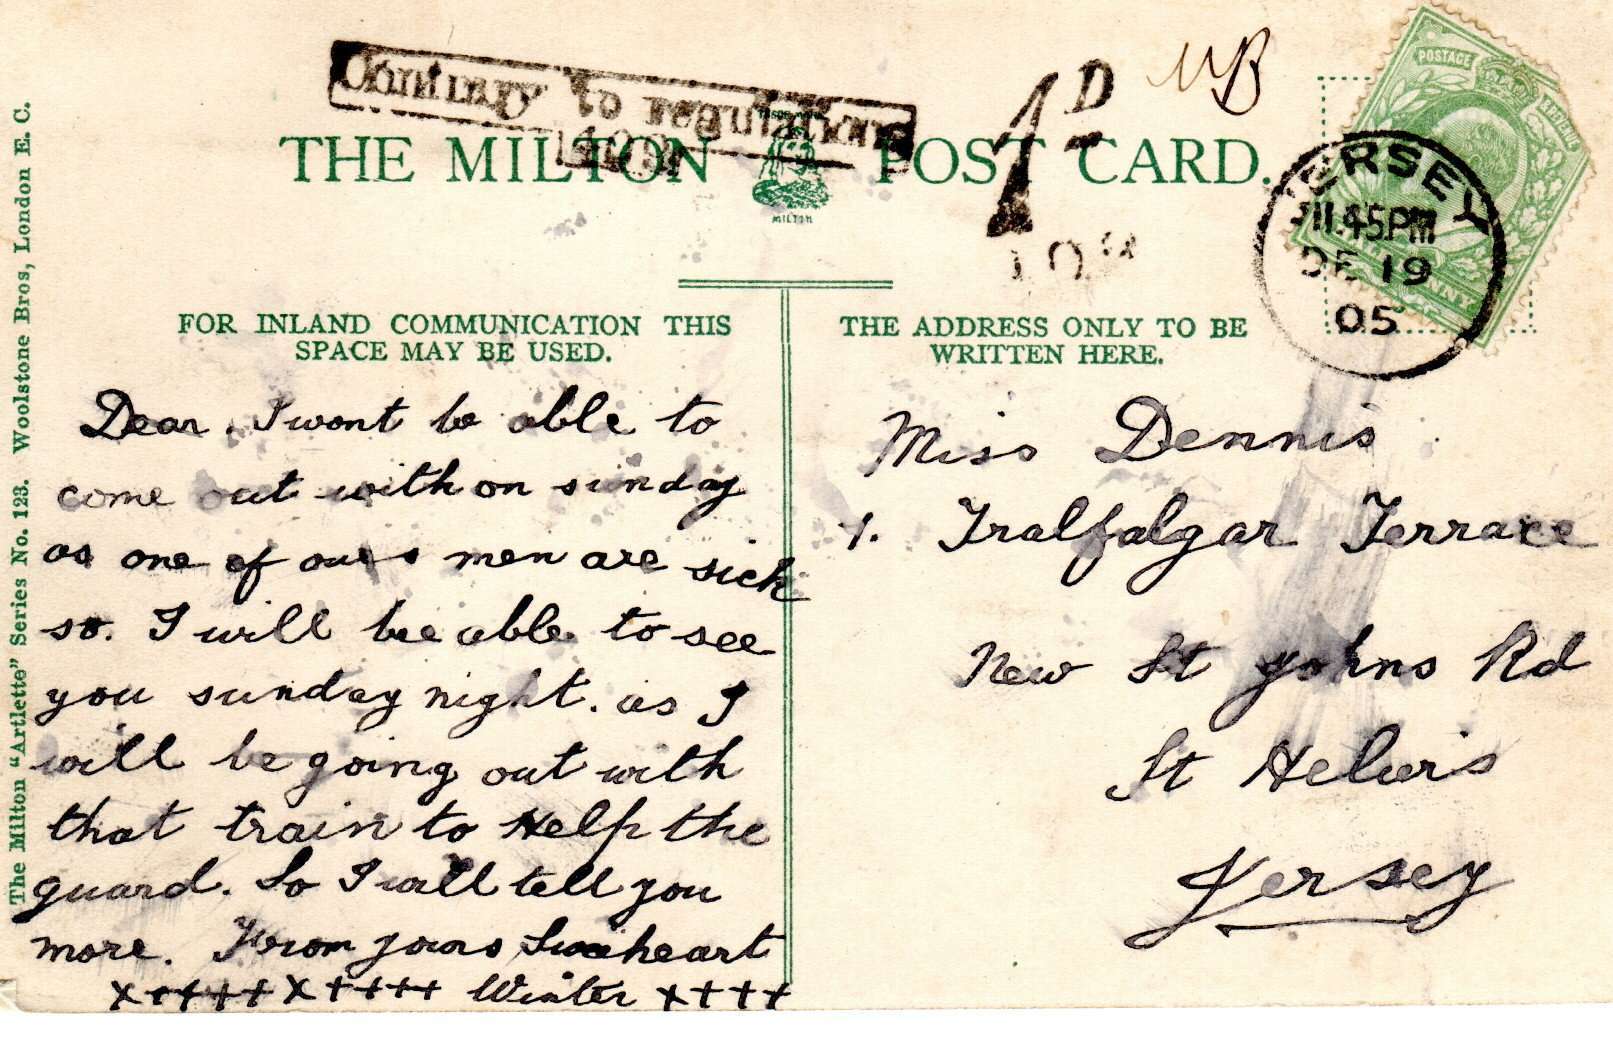 Contrary to regulations
108
1D
MB
POSTAGE
THE MILTON POST CARD.
MILTON
108
JERSEY
11.45PM
DE 19
05
The Milton "Artlette" Series No. 123. Woolstone Bros, London E. C.
FOR INLAND COMMUNICATION THIS
SPACE MAY BE USED.
THE ADDRESS ONLY TO BE
WRITTEN HERE.
Dear. I wont be able to
come out with on sunday
as one of ours men are sick
so. I will be able to see
you sunday night. as I
will be going out with
that train to Help the
guard. So I will tell you
more. From yours Sweeheart
x+++++x++++ Winter x+++
Miss Dennis
1. Tralfalgar Terrace
New St Johns Rd
St Heliers
Jersey